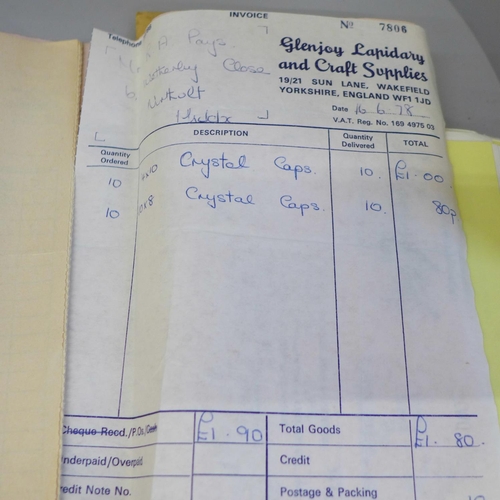 INVOICE
Nº 7806
Telephone
A Pays.
Close
Glenjoy Lapidary
and Craft Supplies
19/21 SUN LANE, WAKEFIELD
YORKSHIRE, ENGLAND WF1 1JD
Date 16.6.78
V.A.T. Reg. No. 169 4975 03
Quantity Ordered DESCRIPTION Quantity Delivered TOTAL
10 Crystal Caps. 10. £1.00.
10 10x8 Crystal Caps. 10. 80p
Cheque Recd./P.Os./Cash £1.90 Total Goods £1.80.
Underpaid/Overpaid Credit
Credit Note No. Postage & Packing